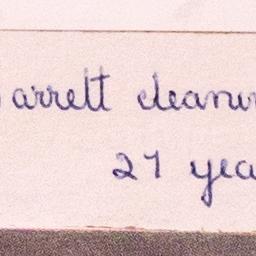 arrett cleanin
27 yea